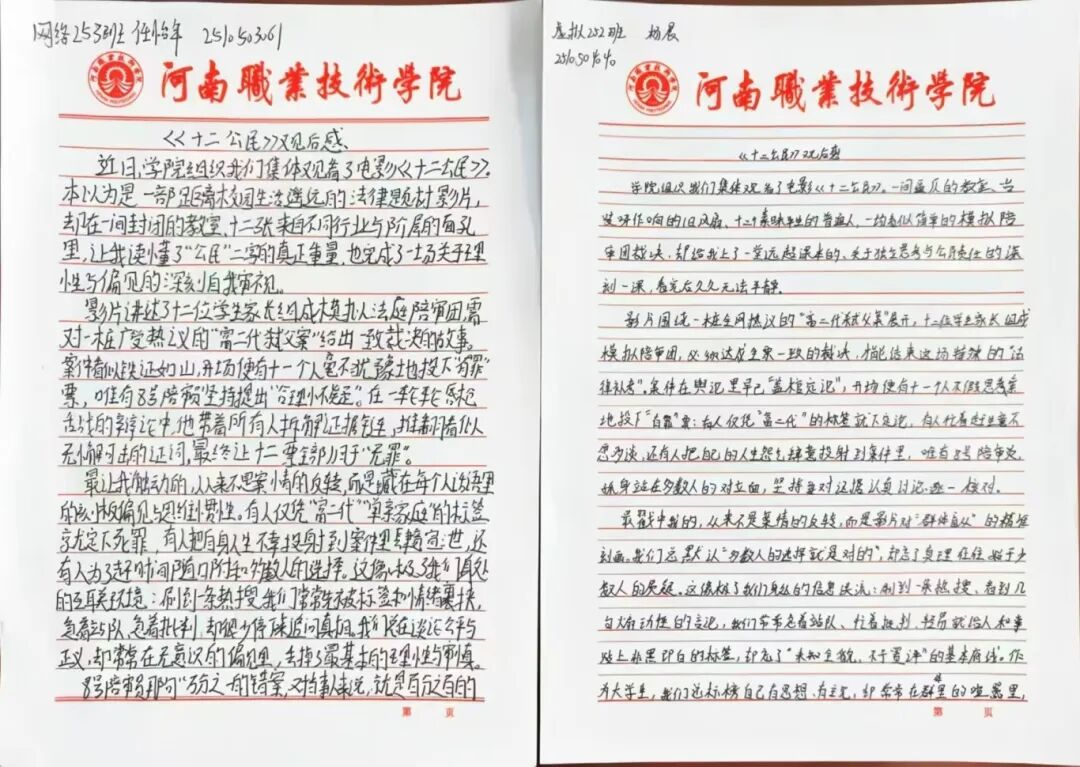 网络253班 任怡年 2510503061
河南職業技術学院
《十二公民》观后感
近日,学院组织我们集体观看了电影《十二公民》。
本以为是一部距离校园生活遥远的法律题材影片,
却在一间封闭的教室,十二张来自不同行业与阶层的面孔
里,让我读懂了“公民”二字的真正重量,也完成了一场关于理
性与偏见的深刻自我审视。
影片讲述了十二位学生家长组成模拟法庭陪审团需
对一桩广受热议的“富二代弑父案”给出一致裁决的故事。
案件看似铁证如山,开场便有十一个人毫不犹豫地投下“有罪”
票,唯有8号陪审员坚持提出“合理怀疑”。在一轮轮唇枪
舌战的辩论中,他带着所有人拆解证据链,推翻看似
无懈可击的证词,最终让十二票全部归于“无罪”。
最让我触动的,从来不是案情的反转,而是藏在每个人话语里
的刻板偏见与思维惯性。有人仅凭“富二代”“单亲家庭”的标签
就定下死罪,有人把自身人生不幸投射到案件里肆意宣泄,还
有人为了赶时间随口附和多数人的选择。这像极了我们身处
的互联环境:刷到一条热搜,我们常常先被标签和情绪裹挟,
急着站队,急着批判,却很少停下来追问真相。我们总在谈论公平与
正义,却常常在无意识的偏见里,丢掉了最基本的理性与审慎。
8号陪审员那句“万分之一的错案,对当事人来说,就是百分之百的
第 页
虚拟252班 杨晨
河南職業技術学院
《十二公民》观后感
学院组织我们集体观看了电影《十二公民》。一间普通的教室、
吱呀作响的旧风扇、十二个素昧平生的普通人,一场看似简单的模拟陪
审团裁决,却给我上了一堂远超课本的、关于独立思考与公民责任的深
刻一课,看完后久久无法平静。
影片围绕一桩全网热议的“富二代弑父案”展开,十二位学生家长组成
模拟陪审团,必须达成全票一致的裁决,才能结束这场特殊的“法
律补考”。案件在舆论里早已“盖棺定论”,开场便有十一个人不假思索
地投下“有罪”票:有人仅凭“富二代”的标签就下定论,有人忙着赶生意不
愿多谈,还有人把自己的人生怨气肆意投射到案件里,唯有8号陪审员
孤身站在多数人的对立面,坚持要对证据认真讨论、逐一核对。
最戳中我的,从来不是案情的反转,而是影片对“群体盲从”的精准
刻画。我们总默认“多数人的选择就是对的”,却忘了真理往往始于少
数人的质疑。这像极了我们身处的信息洪流:刷到一条热搜、看到几
句有煽动性的言论,我们常常急着站队、忙着批判,轻易就给人和事
贴上非黑即白的标签,却忘了“未知全貌、不予置评”的基本底线。作
为大学生,我们总标榜自己有思想、有主见,却常常在群体的喧嚣里,
第 页